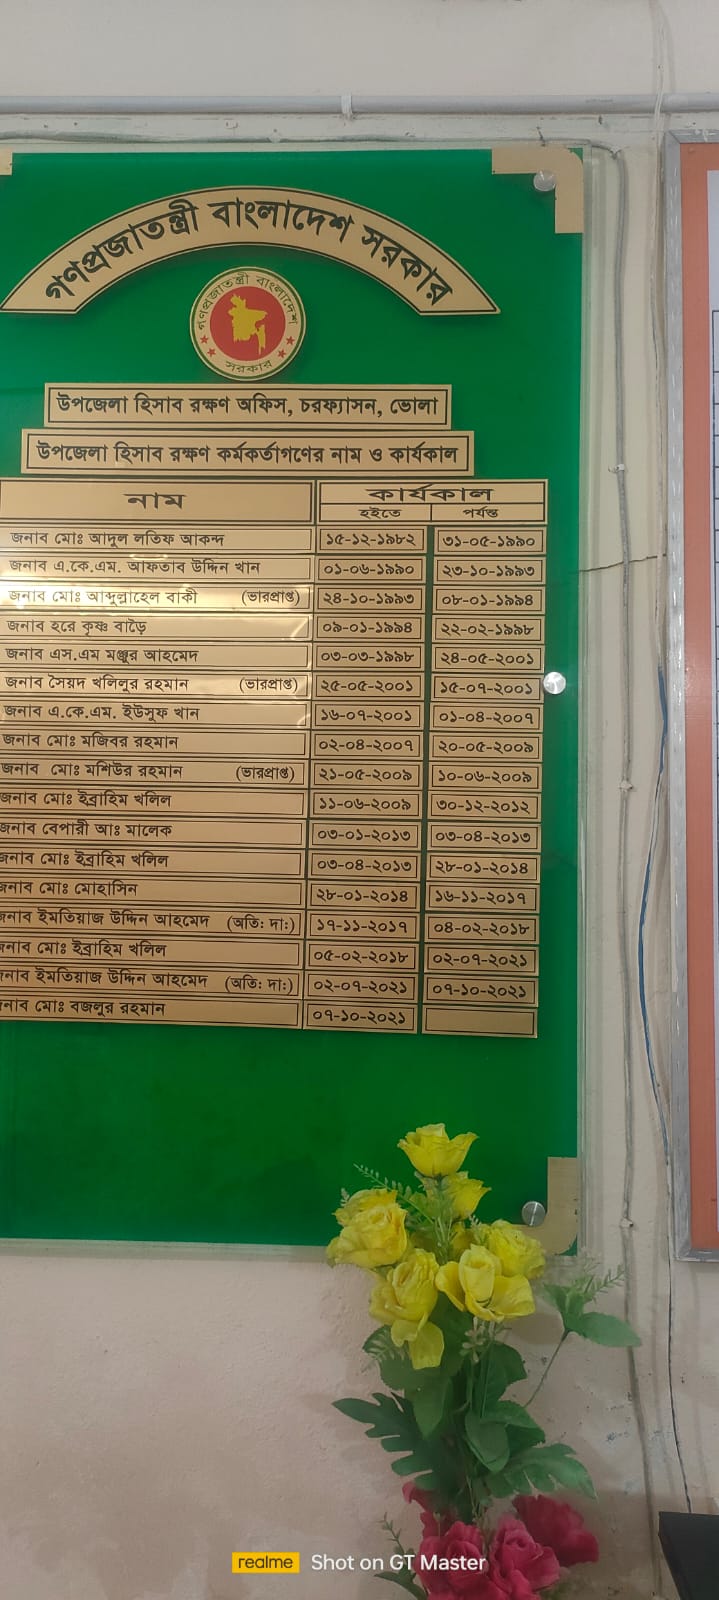 গণপ্রজাতন্ত্রী বাংলাদেশ সরকার
গণপ্রজাতন্ত্রী বাংলাদেশ
সরকার
উপজেলা হিসাব রক্ষণ অফিস, চরফ্যাসন, ভোলা
উপজেলা হিসাব রক্ষণ কর্মকর্তাগণের নাম ও কার্যকাল
নাম কার্যকাল
হইতে পর্যন্ত
জনাব মোঃ আদুল লতিফ আকন্দ ১৫-১২-১৯৮২ ৩১-০৫-১৯৯০
জনাব এ.কে.এম. আফতাব উদ্দিন খান ০১-০৬-১৯৯০ ২৩-১০-১৯৯৩
জনাব মোঃ আব্দুল্লাহেল বাকী (ভারপ্রাপ্ত) ২৪-১০-১৯৯৩ ০৮-০১-১৯৯৪
জনাব হরে কৃষ্ণ বাড়ৈ ০৯-০১-১৯৯৪ ২২-০২-১৯৯৮
জনাব এস.এম মঞ্জুর আহমেদ ০৩-০৩-১৯৯৮ ২৪-০৫-২০০১
জনাব সৈয়দ খলিলুর রহমান (ভারপ্রাপ্ত) ২৫-০৫-২০০১ ১৫-০৭-২০০১
জনাব এ.কে.এম. ইউসুফ খান ১৬-০৭-২০০১ ০১-০৪-২০০৭
জনাব মোঃ মজিবর রহমান ০২-০৪-২০০৭ ২০-০৫-২০০৯
জনাব মোঃ মশিউর রহমান (ভারপ্রাপ্ত) ২১-০৫-২০০৯ ১০-০৬-২০০৯
জনাব মোঃ ইব্রাহিম খলিল ১১-০৬-২০০৯ ৩০-১২-২০১২
জনাব বেপারী আঃ মালেক ০৩-০১-২০১৩ ০৩-০৪-২০১৩
জনাব মোঃ ইব্রাহিম খলিল ০৩-০৪-২০১৩ ২৮-০১-২০১৪
জনাব মোঃ মোহাসিন ২৮-০১-২০১৪ ১৬-১১-২০১৭
জনাব ইমতিয়াজ উদ্দিন আহমেদ (অতিঃ দাঃ) ১৭-১১-২০১৭ ০৪-০২-২০১৮
জনাব মোঃ ইব্রাহিম খলিল ০৫-০২-২০১৮ ০২-০৭-২০২১
জনাব ইমতিয়াজ উদ্দিন আহমেদ (অতিঃ দাঃ) ০২-০৭-২০২১ ০৭-১০-২০২১
জনাব মোঃ বজলুর রহমান ০৭-১০-২০২১
realme Shot on GT Master